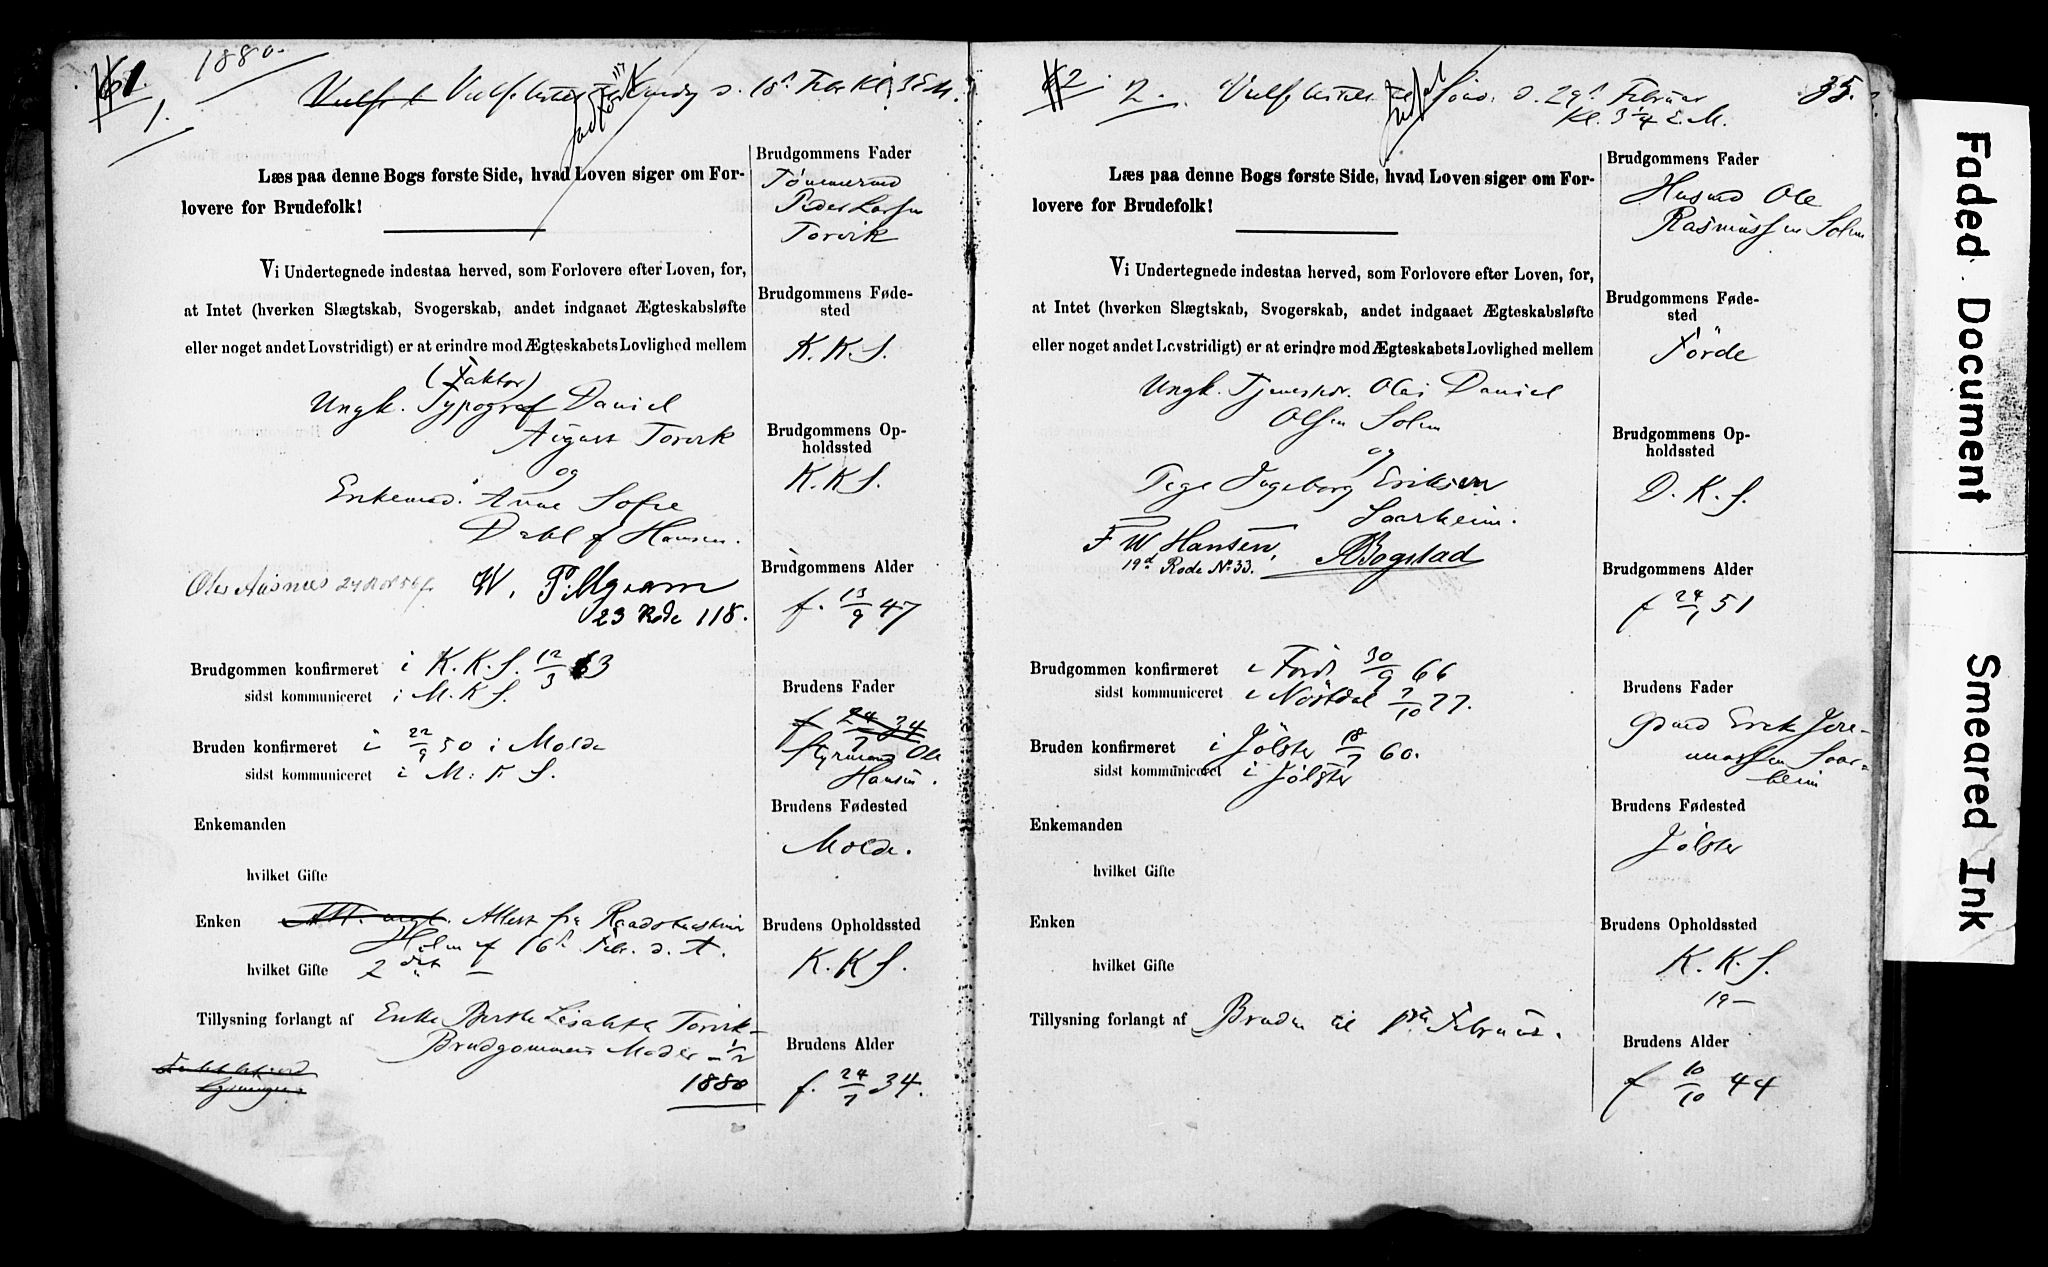 1880.
1.
Vielse
d. 18d Febr Kl. 3 E.M.
Læs paa denne Bogs første Side, hvad Loven siger om For-
lovere for Brudefolk!
Vi Undertegnede indestaa herved, som Forlovere efter Loven, for,
at Intet (hverken Slægtskab, Svogerskab, andet indgaaet Ægteskabsløfte
eller noget andet Lovstridigt) er at erindre mod Ægteskabets Lovlighed mellem
(Faktor)
Ungk. Typograf Daniel
August Torvik
og
Enkemad. Anne Sofie
Dahl f Hansen.
W. Pilgram
23 Rode 118.
Brudgommen konfirmeret i K.K.S. 12/3 63
sidst kommuniceret i M.K.S.
Bruden konfirmeret i 22/9 50 i Molde
sidst kommuniceret i M.K.S.
Enkemanden
hvilket Gifte
Enken Attest fra Raadstueskriver
Holm af 16d Febr. d. A.
hvilket Gifte 2det
Tillysning forlangt af Enke Berthe Lisabeth Torvik
Brudgommens Moder 1/2
1880
Brudgommens Fader
Tømmermd
Peder Larsen
Torvik
Brudgommens Føde-
sted
K.K.S.
Brudgommens Op-
holdssted
K.K.S.
Brudgommens Alder
f. 13/9 47
Brudens Fader
f 24/7 34
Styrmand Ole
Hansen.
Brudens Fødested
Molde.
Brudens Opholdssted
K.K.S.
Brudens Alder
f. 24/7 34.
#2
2.
35.
Vielse
d. 29d Februar
Kl. 3 1/4 E.M.
Læs paa denne Bogs første Side, hvad Loven siger om For-
lovere for Brudefolk!
Vi Undertegnede indestaa herved, som Forlovere efter Loven, for,
at Intet (hverken Slægtskab, Svogerskab, andet indgaaet Ægteskabsløfte
eller noget andet Lovstridigt) er at erindre mod Ægteskabets Lovlighed mellem
Ungk. Tjenestkr. Olai Daniel
Olsen Solem
og
Pige Ingeborg Eriksen
Saarheim.
F W Hansen, Bogstad
19d Rode No 33.
Brudgommen konfirmeret i Førde 30/9 66
sidst kommuniceret i Nøstdal 7/10 77.
Bruden konfirmeret i Jølster 18/7 60.
sidst kommuniceret i Jølster
Enkemanden
hvilket Gifte
Enken
hvilket Gifte
Tillysning forlangt af Bruden til Februar.
Brudgommens Fader
Husmd Ole
Rasmussen Solem
Brudgommens Føde-
sted
Førde
Brudgommens Op-
holdssted
D.K.S.
Brudgommens Alder
f 24/1 51
Brudens Fader
Gdmd Erik Jere-
miassen Saar-
heim
Brudens Fødested
Jølster
Brudens Opholdssted
K.K.S.
19-
Brudens Alder
f 10/10 44
Faded Document
Smeared Ink